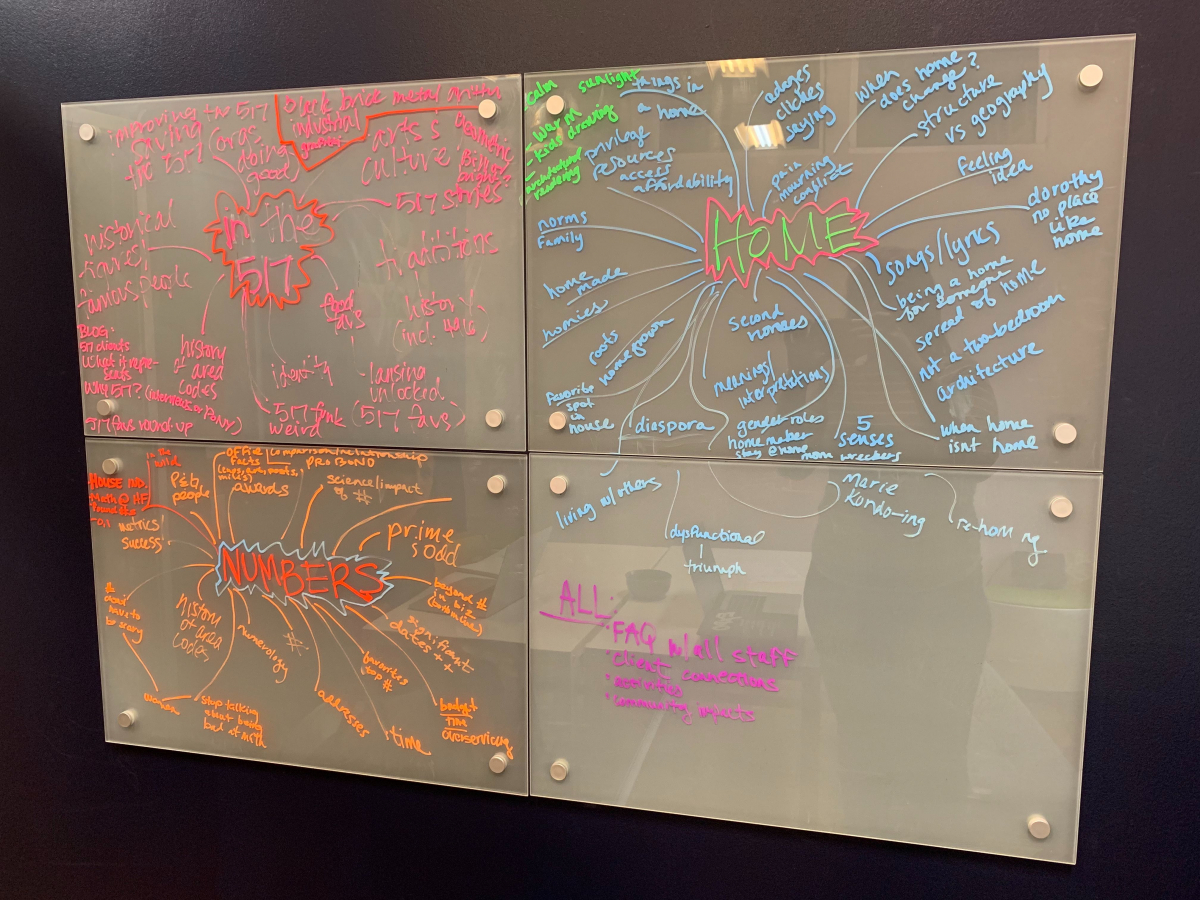 improving the 517
saving
the 517
(orgs
doing
good)
black brick metal
industrial
arts &
culture
geometric
517 stories
in the
517
traditions
historical
famous people
food
favs
history
(incl. 
BLOG:
517 digits
What it repre-
sents
Why 517?
517 favs round-up
history
of area
codes
identity
517 funk
weird
lansing
unlocked
(517 favs)
calm
sunlight
- warm
- kids drawing
architectural
rendering
things in
a home
adages
cliches
saying
when
does home
change?
structure
vs geography
privilege
resources
access
affordability
pain
mourning
conflict
feeling
idea
dorothy
no place
like
home
HOME
norms
family
songs/lyrics
being a home
for someone
spread of home
home
made
homies
second
homes
not a two-bedroom
architecture
roots
homegrown
meanings/
interpretations
favorite
spot
in
house
diaspora
gender roles
home maker
stay @ home mom
wreckers
5
senses
when home
isnt home
in the
wild
HOUSE NO.
Math @ HF
P&Q
people
office
facts
awards
comparison/relationship
PRO BONO
science/impact
of #
metrics
success
prime
& odd
NUMBERS
beyond #
in biz
#
dont
have to
be scary
history
of area
codes
numerology
#
significant
dates ++
favorites
top #
women
stop talking
about being
bad at math
addresses
time
budget
time
overservicing
living w/others
dysfunctional
triumph
Marie
Kondo-ing
re-homing
ALL:
• FAQ w/all staff
• client connections
• activities
• community impacts